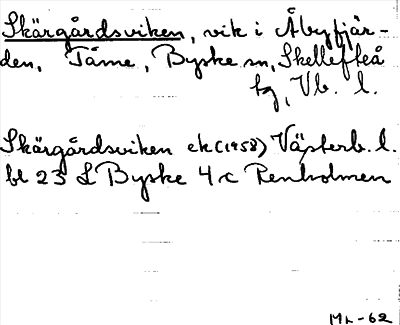 Skärgårdsviken, vik i Åbyfjär-
den, Tåme, Byske sn, Skellefteå
tg, Vb. l.
Skärgårdsviken ek (1958) Västerb. l.
bl 23 L Byske 4 c Renholmen
Mh -62